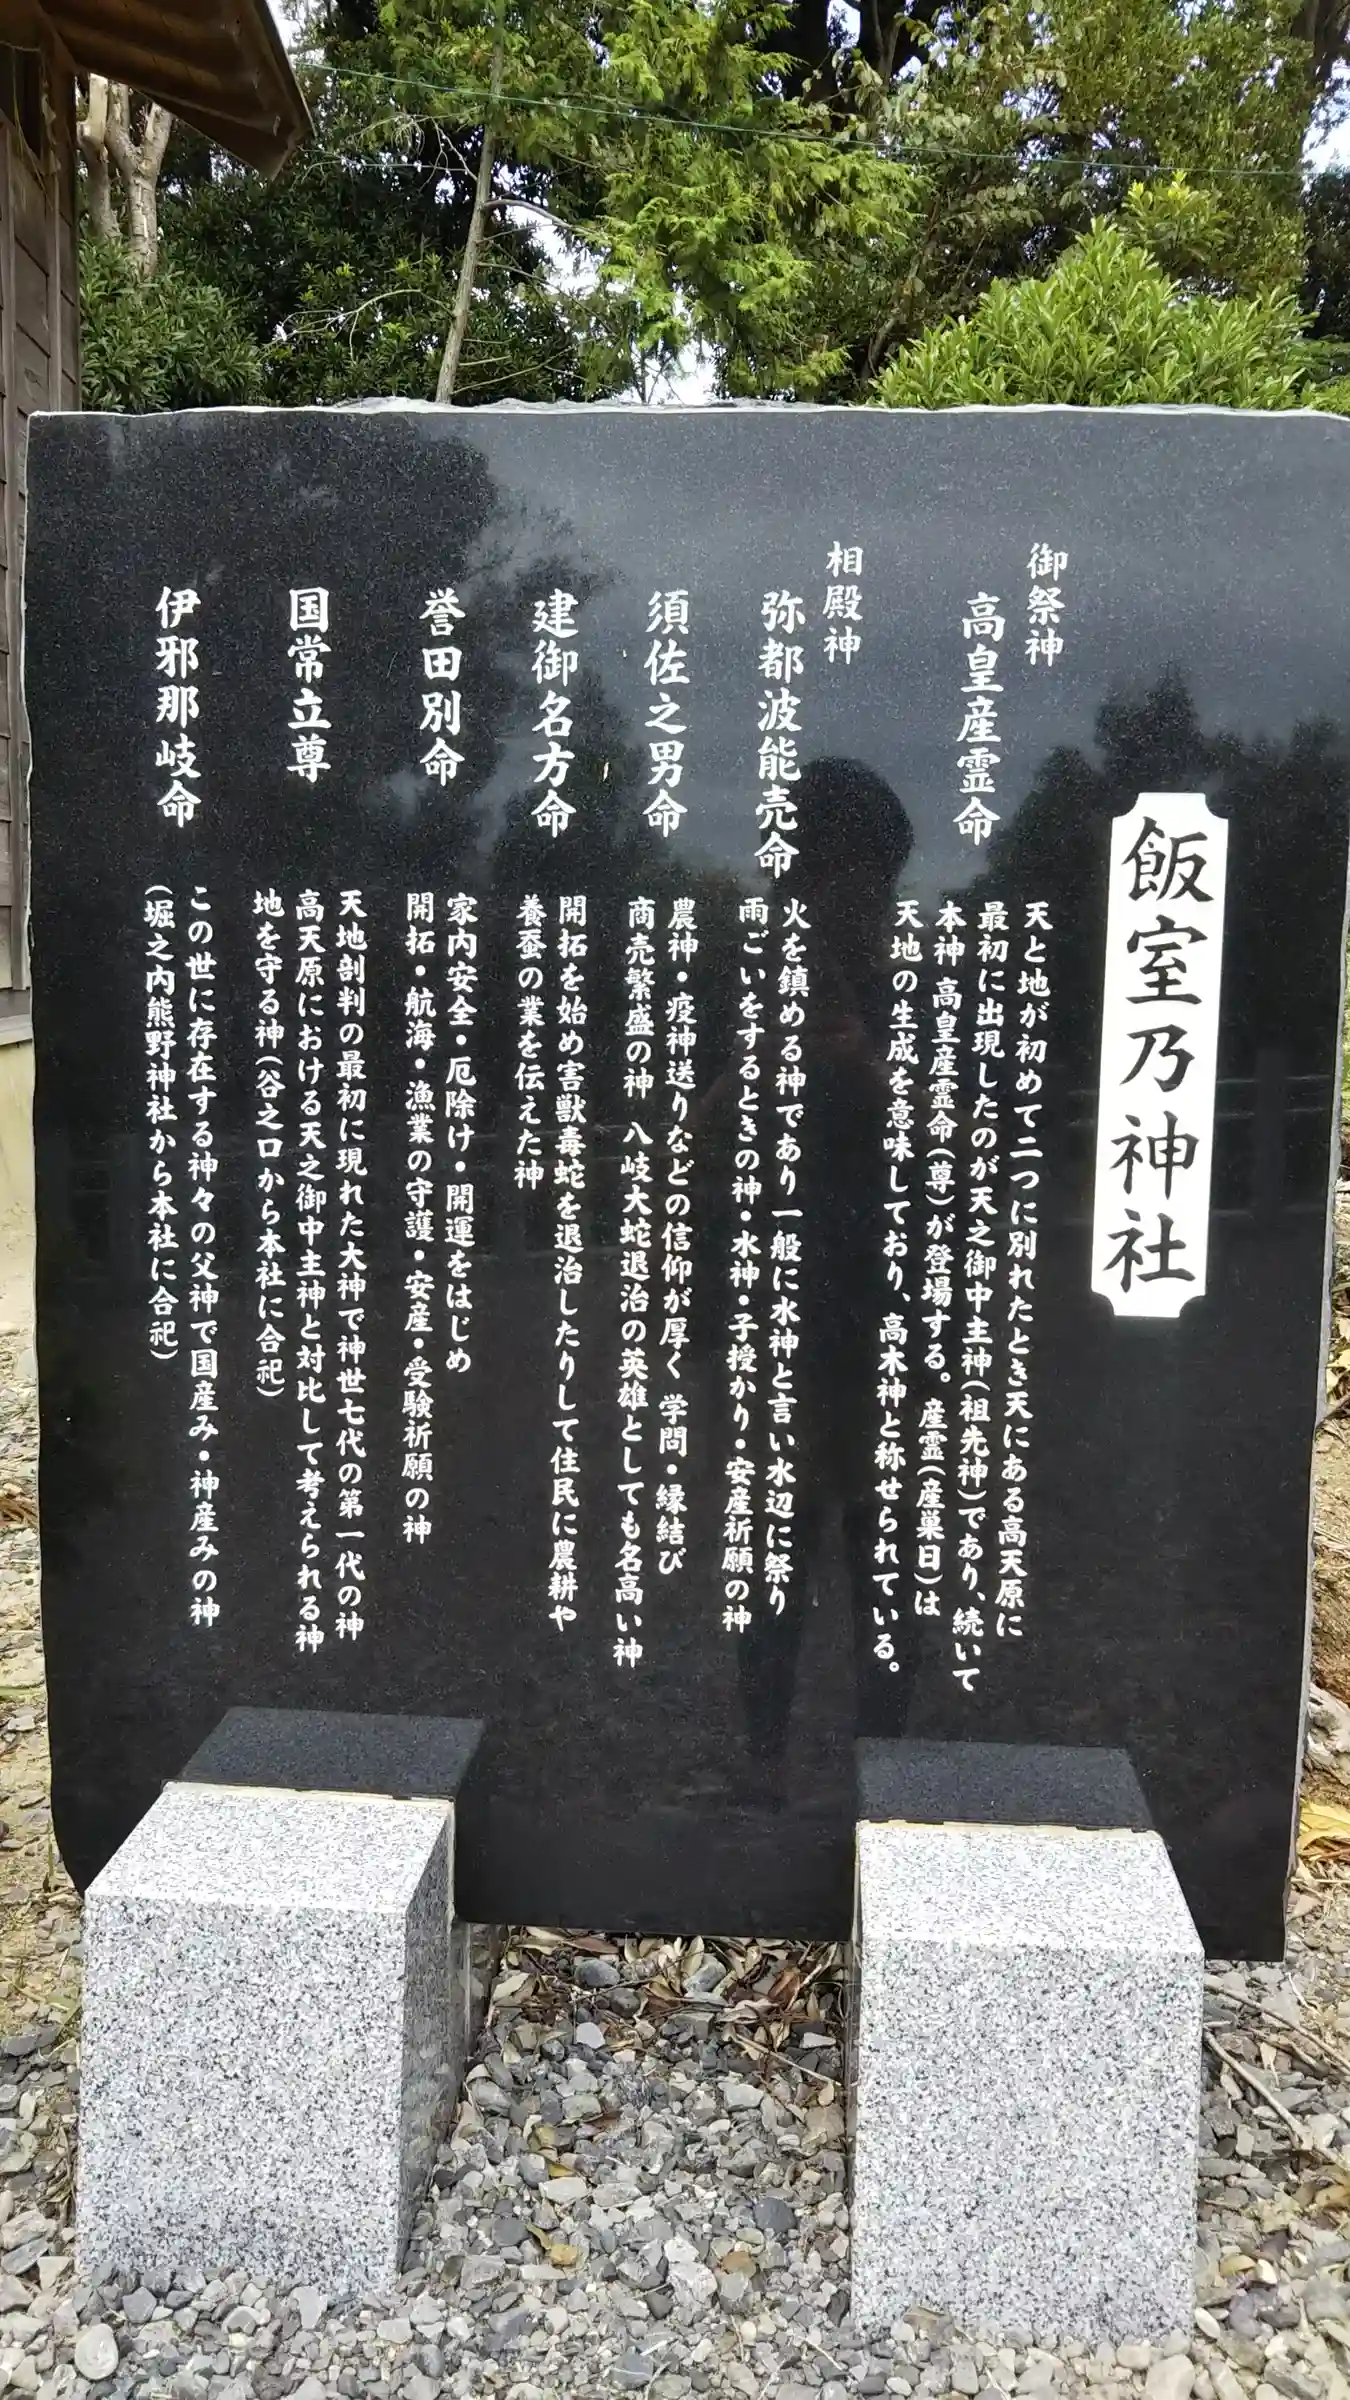 飯室乃神社
御祭神
高皇産霊命
天と地が初めて二つに別れたとき天にある高天原に
最初に出現したのが天之御中主神(祖先神)であり、続いて
本神 高皇産霊命(尊)が登場する。産霊(産巣日)は
天地の生成を意味しており、高木神と称せられている。
相殿神
弥都波能売命
火を鎮める神であり一般に水神と言い水辺に祭り
雨ごいをするときの神・水神・子授かり・安産祈願の神
須佐之男命
農神・疫神送りなどの信仰が厚く 学問・縁結び
商売繁盛の神 八岐大蛇退治の英雄としても名高い神
建御名方命
開拓を始め害獣毒蛇を退治したりして住民に農耕や
養蚕の業を伝えた神
誉田別命
家内安全・厄除け・開運をはじめ
開拓・航海・漁業の守護・安産・受験祈願の神
国常立尊
天地剖判の最初に現れた大神で神世七代の第一代の神
高天原における天之御中主神と対比して考えられる神
地を守る神(谷之口から本社に合祀)
伊邪那岐命
この世に存在する神々の父神で国産み・神産みの神
(堀之内熊野神社から本社に合祀)